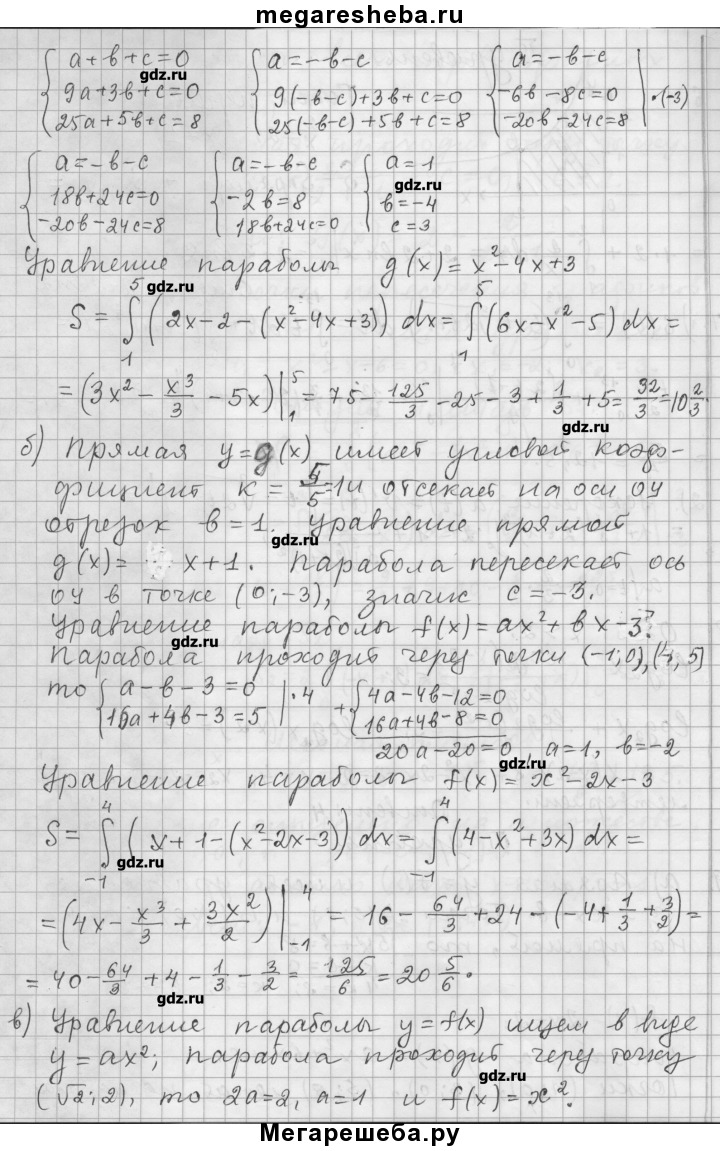 megaresheba.ru
{a+b+c=0 {a=-b-c {a=-b-c
gdz.ru
{9a+3b+c=0 {9(-b-c)+3b+c=0 {-6b-8c=0 |·(-3)
{25a+5b+c=8 {25(-b-c)+5b+c=8 {-20b-24c=8
{a=-b-c {a=-b-c {a=1
gdz.ru
{18b+24c=0 {-2b=8 {b=-4
{-20b-24c=8 {18b+24c=0 {c=3
Уравнение параболы g(x)=x²-4x+3
gdz.ru
S=∫₁⁵(2x-2-(x²-4x+3))dx=∫₁⁵(6x-x²-5)dx=
=(3x²-x³/3-5x)|₁⁵=75-125/3-25-3+1/3+5=32/3=10 2/3.
gdz.ru
б) Прямая y=g(x) имеет угловой коэф-
фициент k=5/5=1 и отсекает на оси OY
отрезок b=1. Уравнение прямой
g(x)= x+1. Парабола пересекает ось
OY в точке (0;-3), значит c=-3.
Уравнение параболы f(x)=ax²+bx-3.
gdz.ru
Парабола проходит через точки (-1;0), (4,5)
то {a-b-3=0 |·4 +{4a-4b-12=0
{16a+4b-3=5 {16a+4b-8=0
20a-20=0, a=1, b=-2
gdz.ru
Уравнение параболы f(x)=x²-2x-3
S=∫₋₁⁴(x+1-(x²-2x-3))dx=∫₋₁⁴(4-x²+3x)dx=
gdz.ru
=(4x-x³/3+3x²/2)|₋₁⁴=16-64/3+24-(-4+1/3+3/2)=
=40-64/3+4-1/3-3/2=125/6=20 5/6.
gdz.ru
в) Уравнение параболы y=f(x) ищем в виде
y=ax²; парабола проходит через точку
gdz.ru
(√2;2), то 2a=2, a=1 и f(x)=x².
Мегарешеба.ру